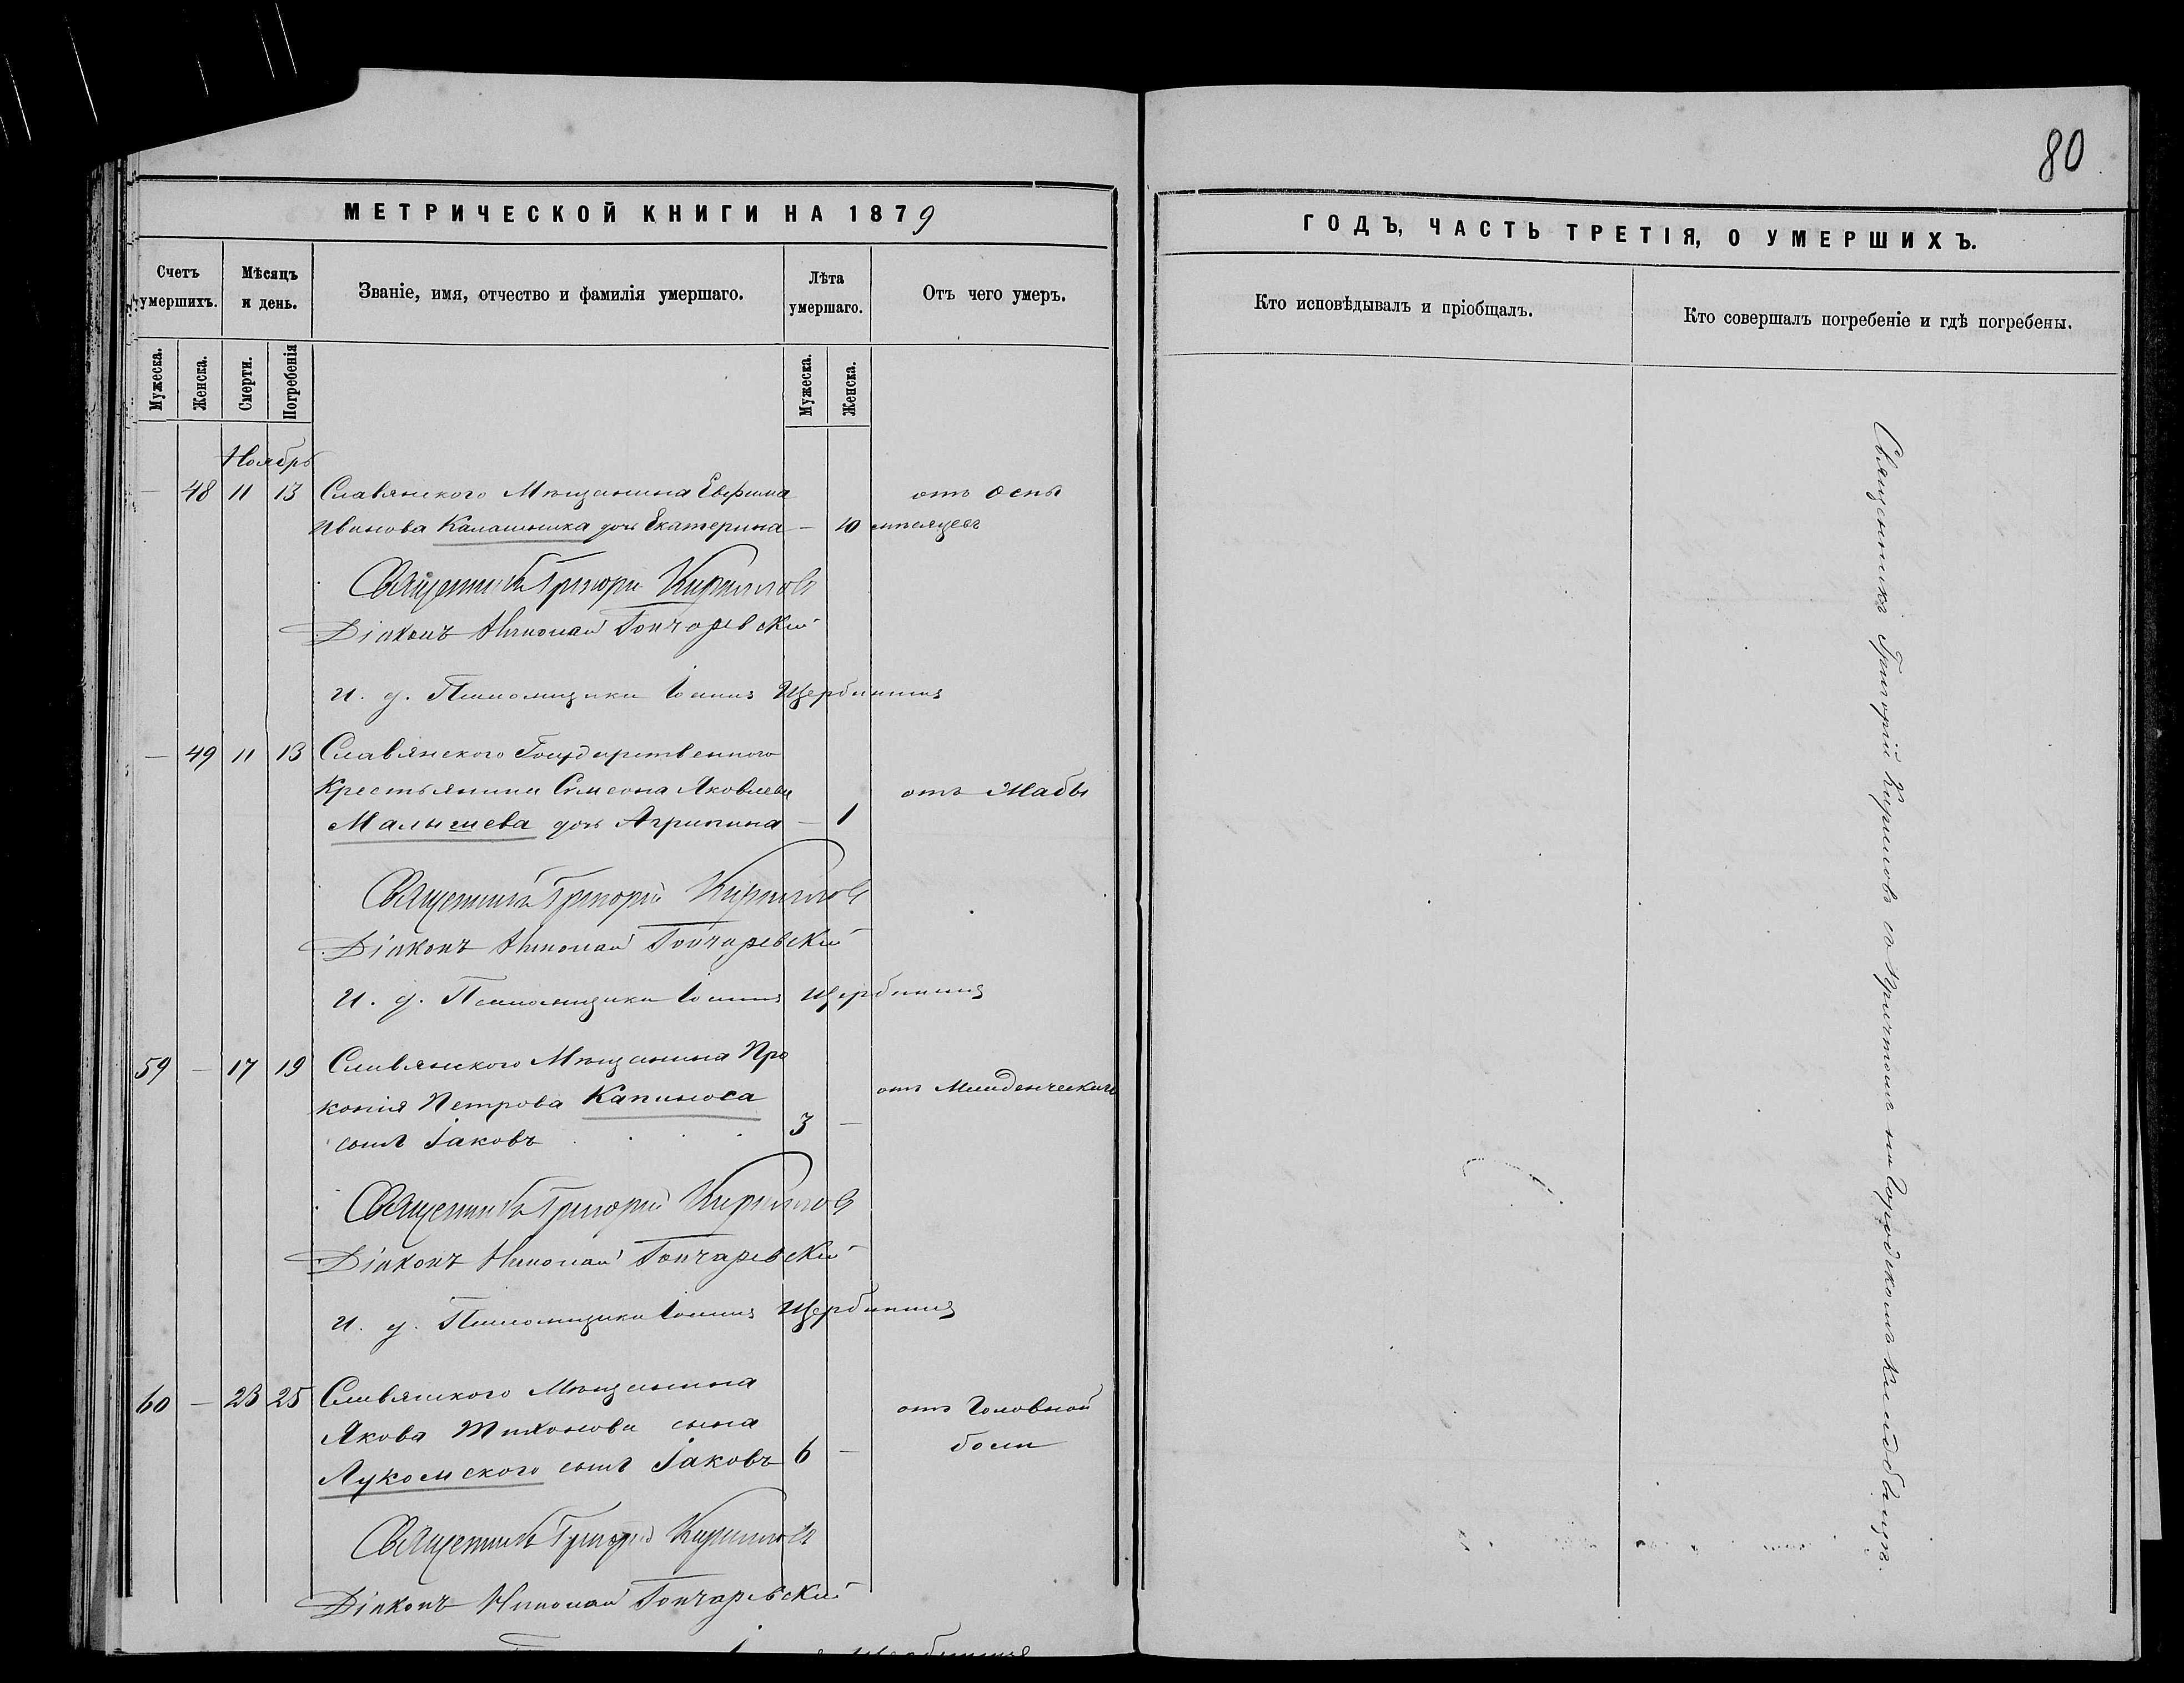 80
МЕТРИЧЕСКОЙ КНИГИ НА 1879
ГОДЪ, ЧАСТЬ ТРЕТІЯ, О УМЕРШИХЪ.
Счетъ умершихъ.
Мѣсяцъ и день.
Званіе, имя, отчество и фамилія умершаго.
Лѣта умершаго.
Отъ чего умеръ.
Кто исповѣдывалъ и пріобщалъ.
Кто совершалъ погребеніе и гдѣ погребены.
Мужеска.
Женска.
Смерти.
Погребенія
Мужеска.
Женска.
Ноябрь
— 48 11 13 Славянского Мѣщанина Евфима отъ оспы
Иванова Калашника дочь Екатерина — 10 мѣсяцевъ
Священникъ Григорій Кириловъ
Діаконъ Николай Гончаревскій
И. д. Псаломщика Іоаннъ
— 49 11 13 Славянского Государственного
Крестьянина Симеона Яковлева отъ Жабы
Малышева дочь Агрипина — 1
Священникъ Григорій Кириловъ
Діаконъ Николай Гончаревскій
И. д. Псаломщика Іоаннъ
59 — 17 19 Славянского Мѣщанина Про
копія Петрова Капиноса отъ Младенческаго
сынъ Іаковъ 3 —
Священникъ Григорій Кириловъ
Діаконъ Николай Гончаревскій
И. д. Псаломщика Іоаннъ
60 — 23 25 Славянского Мѣщанина
Якова Тихонова сына отъ Головной
Лукомского сынъ Іаковъ 6 — боли
Священникъ Григорій Кириловъ
Діаконъ Николай Гончаревскій
Священникъ Григорій Кириловъ съ Причтомъ на Городскомъ Кладбищѣ.